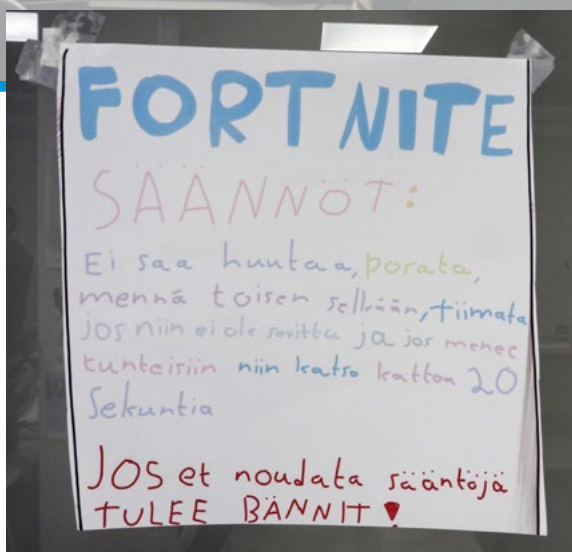 FORTNITE
SÄÄNNÖT:
Ei saa huutaa, porata,
mennä toisen selkään, tiimata
jos niin ei ole sovittu ja jos menee
tunteisiin niin katso kattoa 20
Sekuntia
JOS et noudata sääntöjä
TULEE BÄNNIT!